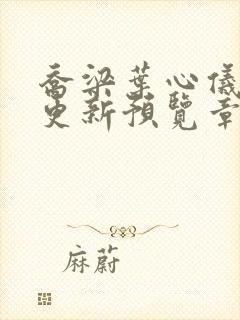 喬梁葉心儀
更新預覽章
麻蔚